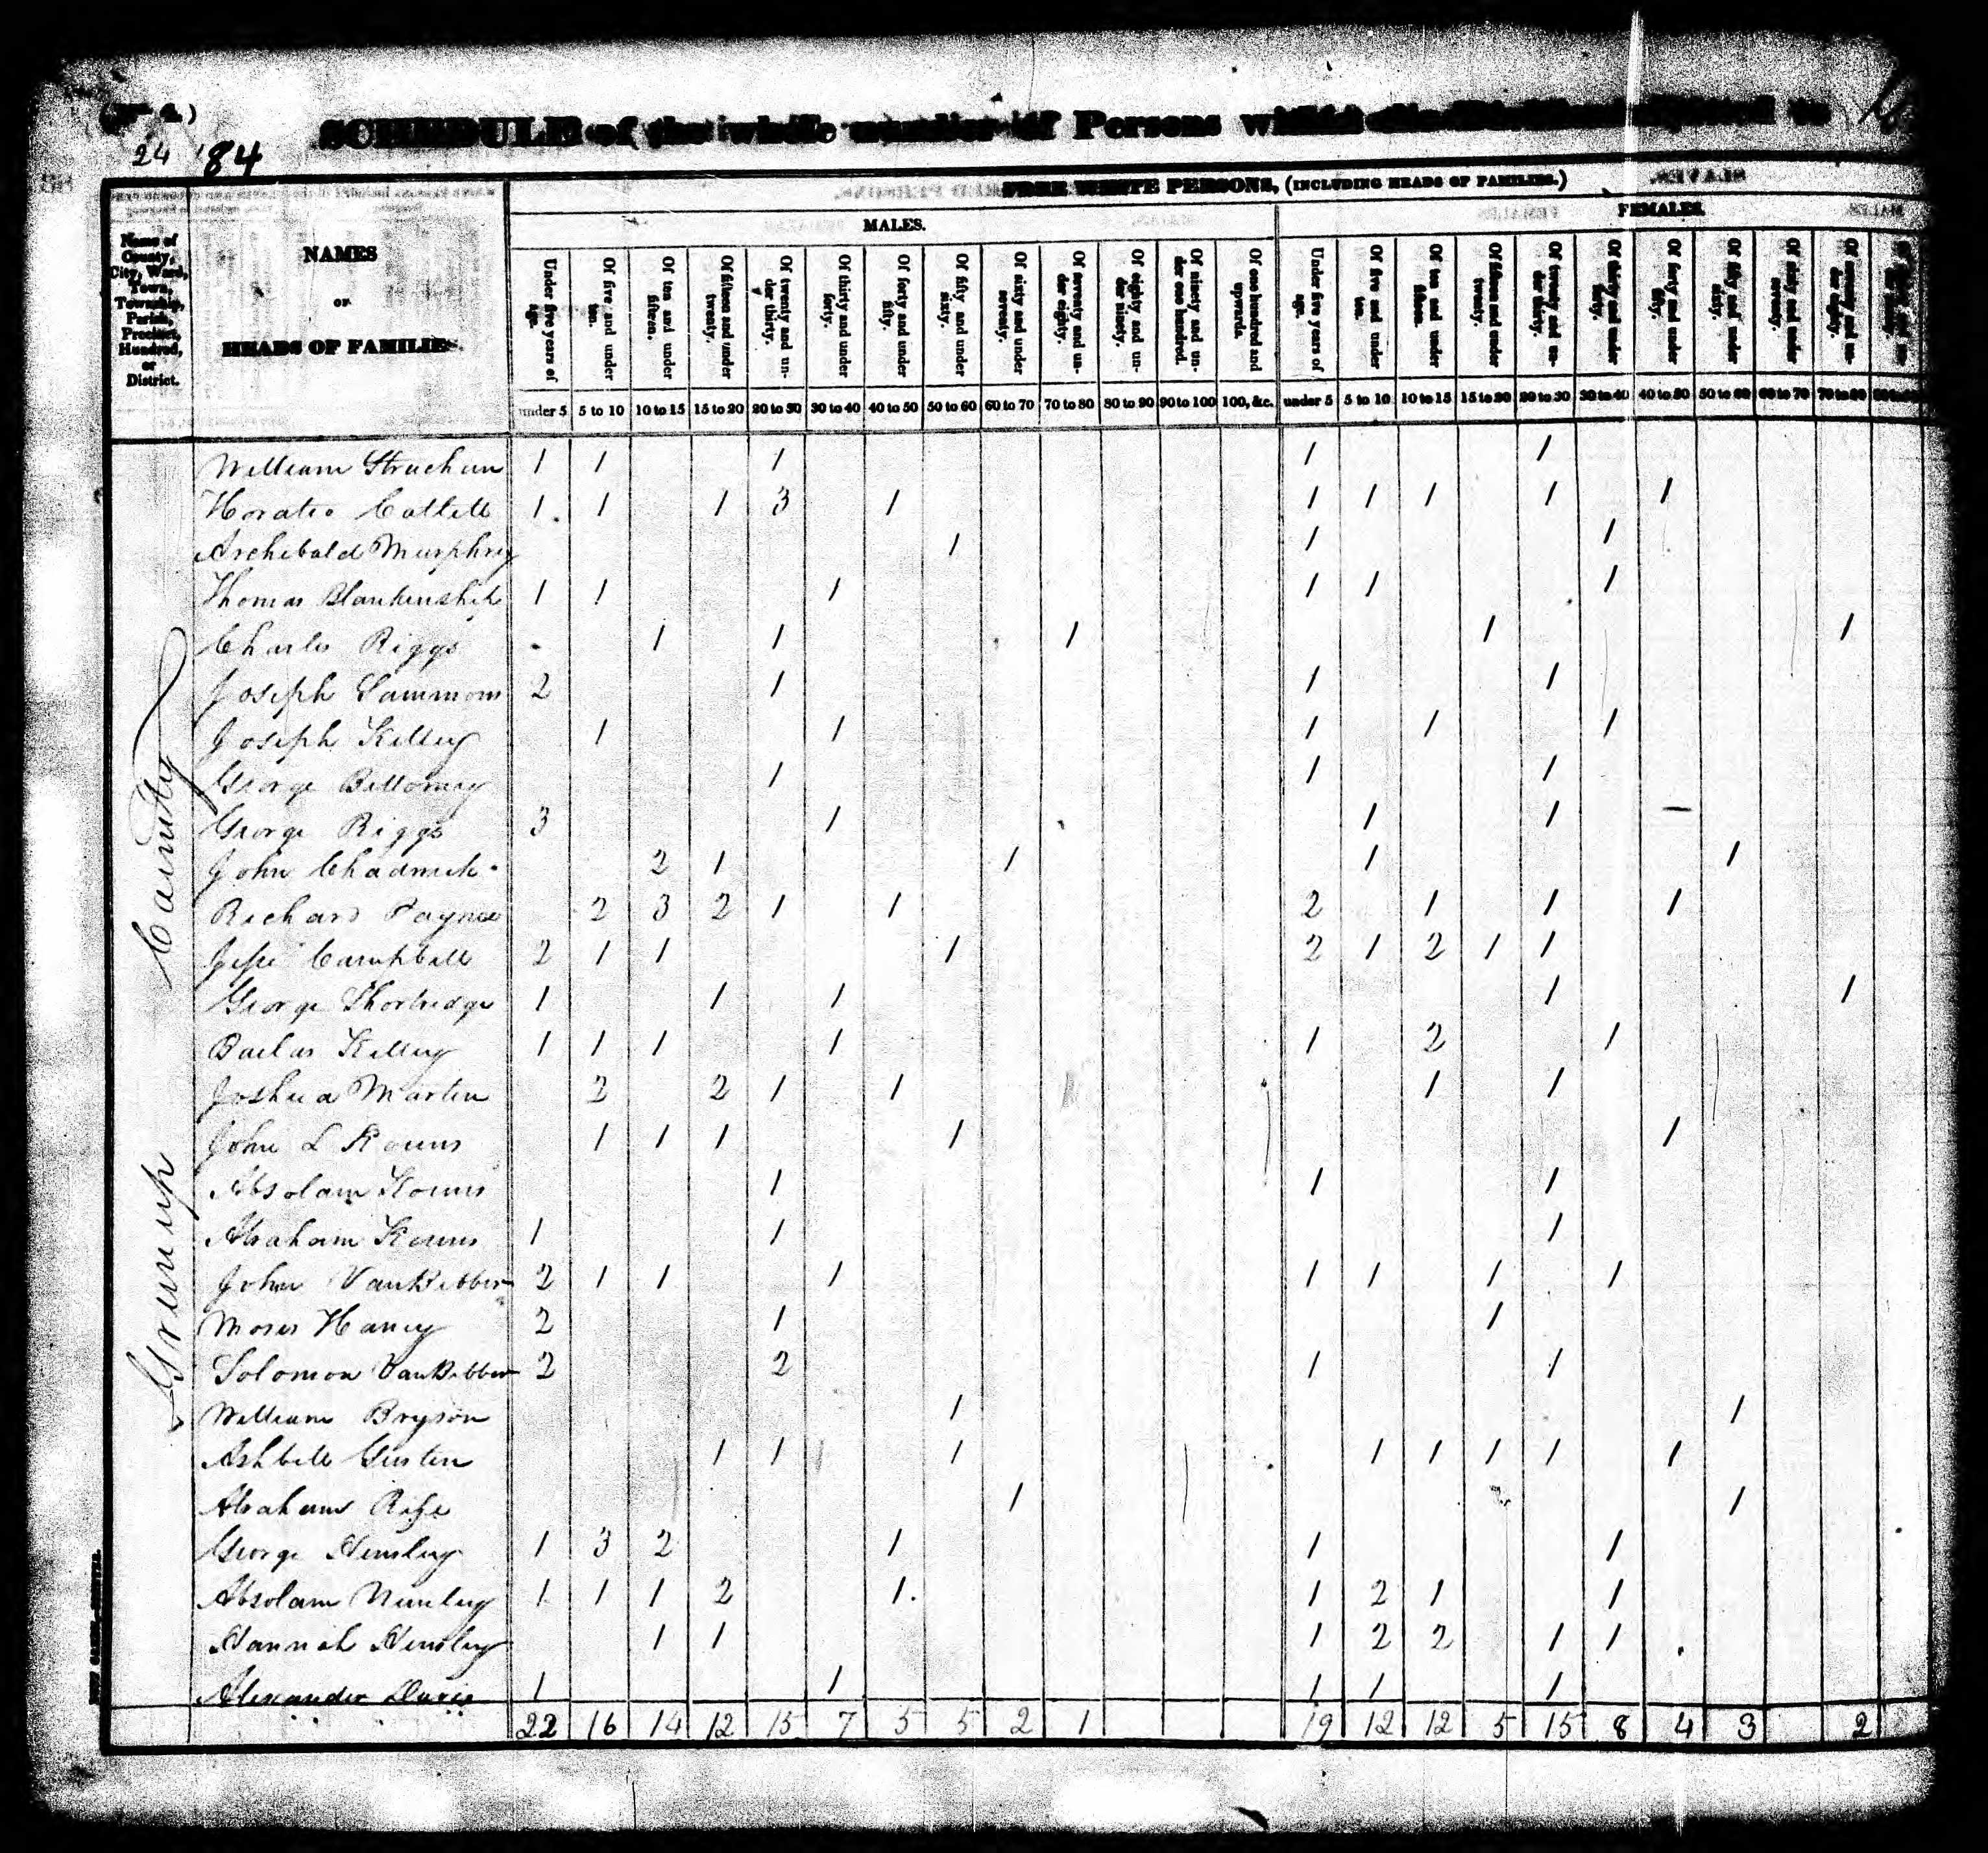 24 84
SCHEDULE of the whole number of Persons within
FREE WHITE PERSONS, (INCLUDING HEADS OF FAMILIES.)
MALES. FEMALES.
Name of County, City, Ward, Town, Township, Parish, Precinct, Hundred, or District.
NAMES
OF
HEADS OF FAMILIES.
Under five years of age. Of five and under ten. Of ten and under fifteen. Of fifteen and under twenty. Of twenty and under thirty. Of thirty and under forty. Of forty and under fifty. Of fifty and under sixty. Of sixty and under seventy. Of seventy and under eighty. Of eighty and under ninety. Of ninety and under one hundred. Of one hundred and upwards. Under five years of age. Of five and under ten. Of ten and under fifteen. Of fifteen and under twenty. Of twenty and under thirty. Of thirty and under forty. Of forty and under fifty. Of fifty and under sixty. Of sixty and under seventy. Of seventy and under eighty.
under 5 5 to 10 10 to 15 15 to 20 20 to 30 30 to 40 40 to 50 50 to 60 60 to 70 70 to 80 80 to 90 90 to 100 100, &c. under 5 5 to 10 10 to 15 15 to 20 20 to 30 30 to 40 40 to 50 50 to 60 60 to 70 70 to 80
Greenup County
William Strachan 1 1 1 1 1
Horatio Catlett 1 1 1 3 1 1 1 1 1 1
Archibald Murphrey 1 1 1
Thomas Blankenship 1 1 1 1 1 1
Charles Riggs 1 1 1 1 1
Joseph Sammons 2 1 1 1
Joseph Kelley 1 1 1 1 1
George Bellomey 1 1 1
George Riggs 3 1 1 1
John Chadwick 2 1 1 1 1
Richard Payne 2 3 2 1 1 2 1 1 1
Jesse Campbell 2 1 1 1 2 1 2 1 1
George Shortridge 1 1 1 1 1
Bailas Kelley 1 1 1 1 1 2 1
Joshua Martin 2 2 1 1 1 1
John L Kouns 1 1 1 1 1
Absolam Kouns 1 1 1
Abraham Kouns 1 1 1
John VanBibber 2 1 1 1 1 1 1 1
Moses Haney 2 1 1
Solomon VanBibber 2 2 1 1
William Bryson 1 1
Ashbell 1 1 1 1 1 1 1 1
Abraham 1 1
George Hensley 1 3 2 1 1 1
Absolam Nunley 1 1 1 2 1 1 2 1 1
Hannah Hensley 1 1 1 2 2 1 1
Alexander Davis 1 1 1 1 1
22 16 14 12 15 7 5 5 2 1 19 12 12 5 15 8 4 3 2